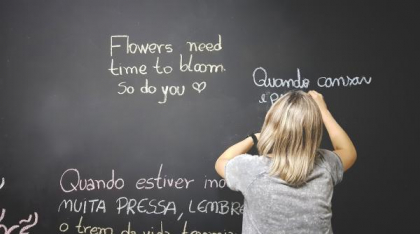 Flowers need
time to bloom.
So do you ♡
Quando cansar
é
Quando estiver
MUITA PRESSA, LEMBRE
o trem da vida